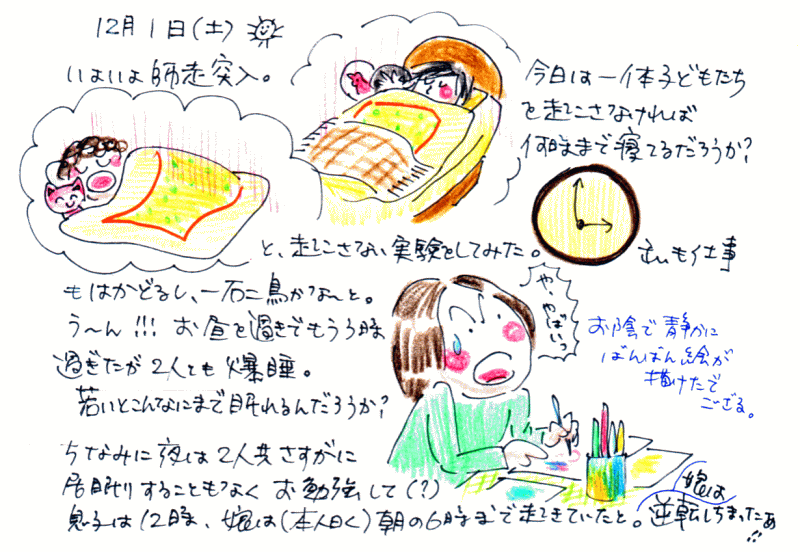 12月1日(土)
いよいよ師走突入。
今日は一体子どもたち
を起こさなければ
何時まで寝てるだろうか?
と、起こさない実験をしてみた。
仕事
もはかどるし、一石二鳥かな〜と。
う〜ん!!! お昼を過ぎてもう3時
過ぎたが2人とも爆睡。
若いとこんなにまで眠れるんだろうか?
や・やばいっ
お陰で静かに
ばんばん絵が
描けたで
ござる。
ちなみに夜は2人共さすがに
居眠りすることもなくお勉強して(?)
息子は12時、娘は(本人曰く)朝の6時まで起きていたと。
娘は
逆転しちまったぁ!!